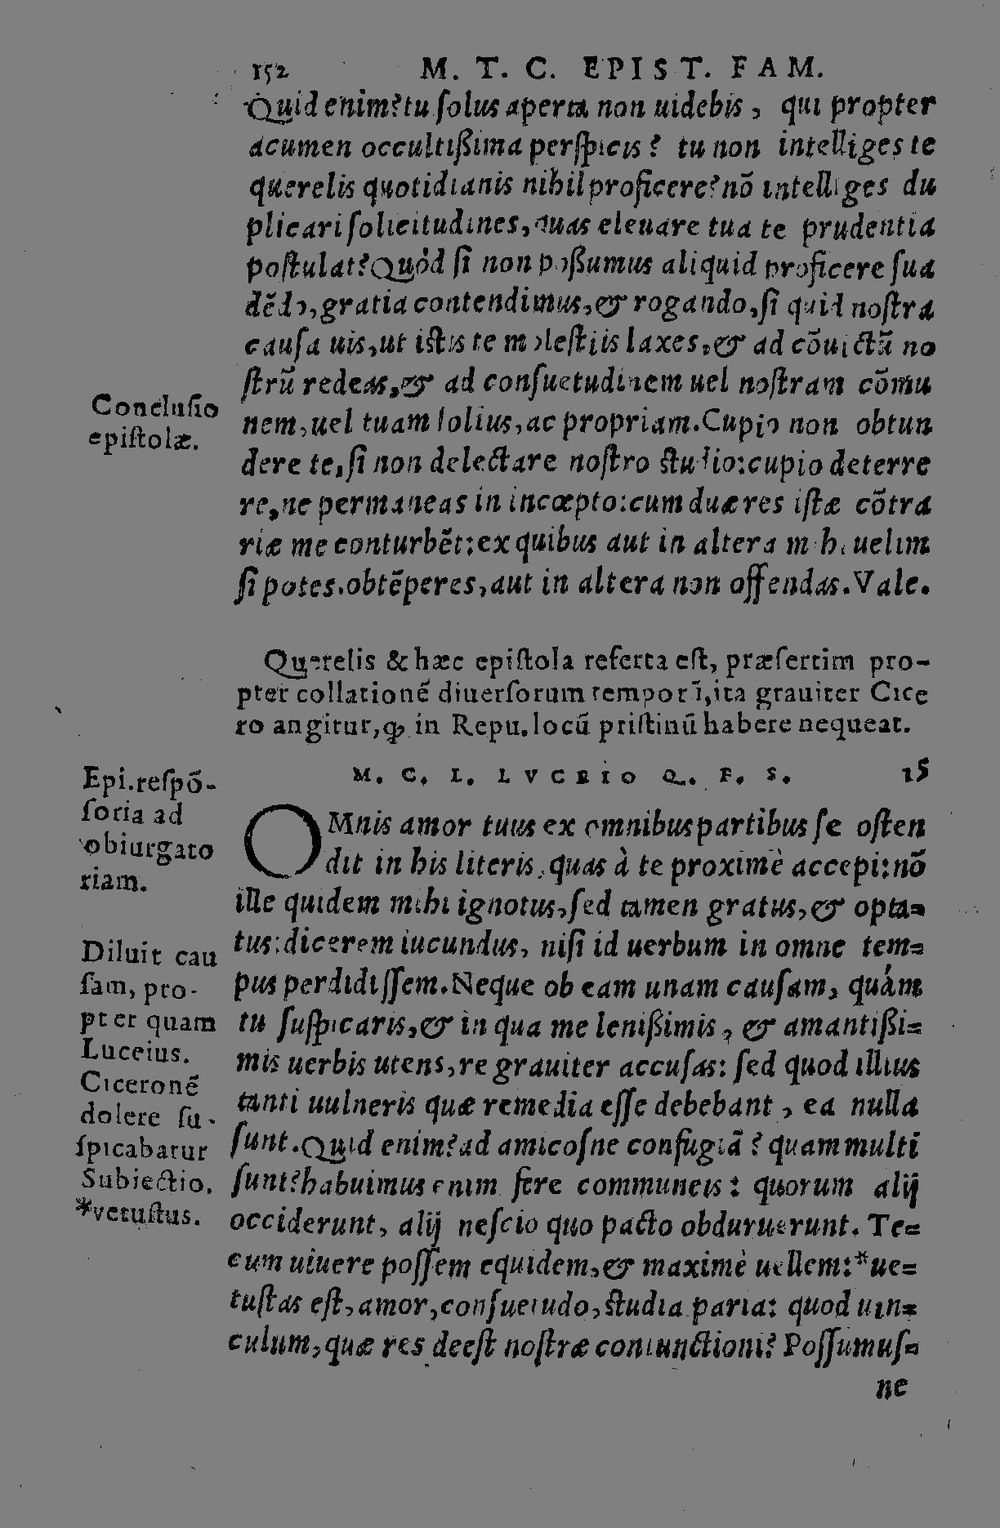 152 M. T. C. EPIST. FAM.
Quid enim? tu solus aperta non uidebis, qui propter
acumen occultißima perspicis? tu non intelliges te
querelis quotidianis nihil proficere? nõ intelliges du
plicari solicitudines, quas eleuare tua te prudentia
postulat? Quòd si non poßumus aliquid proficere sua
dẽdo, gratia contendimus, & rogando, si quid nostra
causa uis, ut istis te molestiis laxes, & ad cõuictũ no
strũ redeas, & ad consuetudinem uel nostram cõmu
nem, uel tuam solius, ac propriam. Cupio non obtun
dere te, si non delectare nostro studio: cupio deterre
re, ne permaneas in incœpto: cum duæ res istæ cõtra
riæ me conturbẽt: ex quibus aut in altera mihi uelim
si potes. obtẽperes, aut in altera non offendas. Vale.
Conclusio
epistolæ.
Querelis & hæc epistola referta est, præsertim pro-
pter collationẽ diuersorum temporũ, ita grauiter Cice
ro angitur, ꝙ in Repu. locũ pristinũ habere nequeat.
M. C. L. LVCEIO Q. F. S. 15
OMnis amor tuus ex omnibus partibus se osten
dit in his literis, quas à te proximè accepi: nõ
ille quidem mihi ignotus, sed tamen gratus, & opta-
tus: dicerem iucundus, nisi id uerbum in omne tem-
pus perdidissem. Neque ob eam unam causam, quàm
tu suspicaris, & in qua me lenißimis, & amantißi-
mis uerbis utens, re grauiter accusas: sed quod illius
tanti uulneris quæ remedia esse debebant, ea nulla
sunt. Quid enim? ad amicosne confugiã? quam multi
sunt? habuimus enim fere communeis: quorum alij
occiderunt, alij nescio quo pacto obduruerunt. Te-
cum uiuere possem equidem, & maximè uellem: *ue-
tustas est, amor, consuetudo, studia paria: quod uin-
culum, quæ res deest nostræ coniunctioni? Possumus-
ne
Epi. respõ-
soria ad
obiurgato
riam.
Diluit cau
sam, pro-
pter quam
Luceius.
Ciceronẽ
dolere su-
spicabatur
Subiectio.
*vetustus.